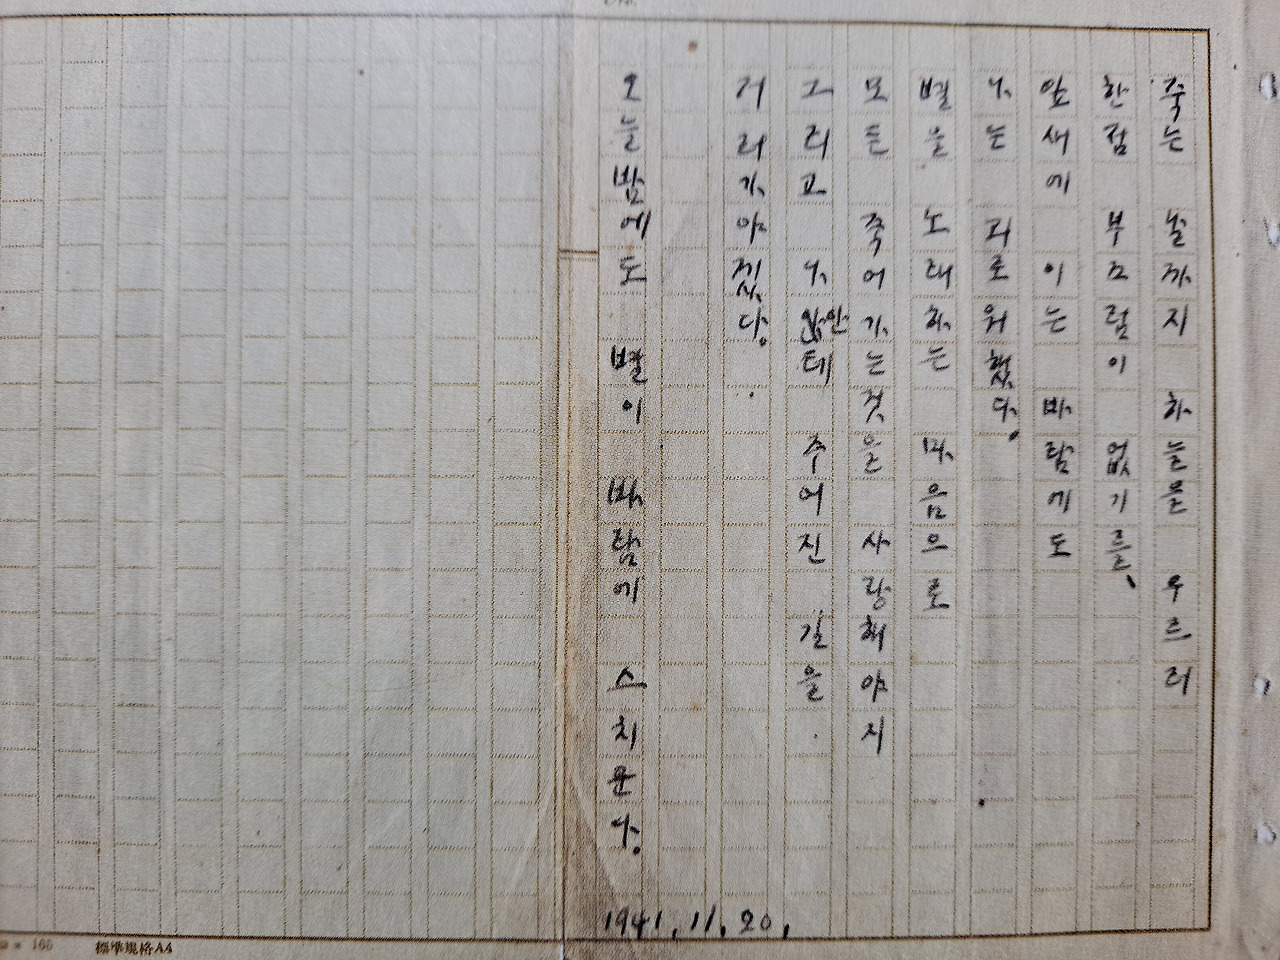 죽는 날까지 하늘을 우르러
한점 부끄럼이 없기를、
잎새에 이는 바람에도
나는 괴로워했다.
별을 노래하는 마음으로
모든 죽어가는것을 사랑해야지
그리고 나안테 주어진 길을
거러가야겠다.
오늘밤에도 별이 바람에 스치운다.
1941.11.20.
165 標準規格A4